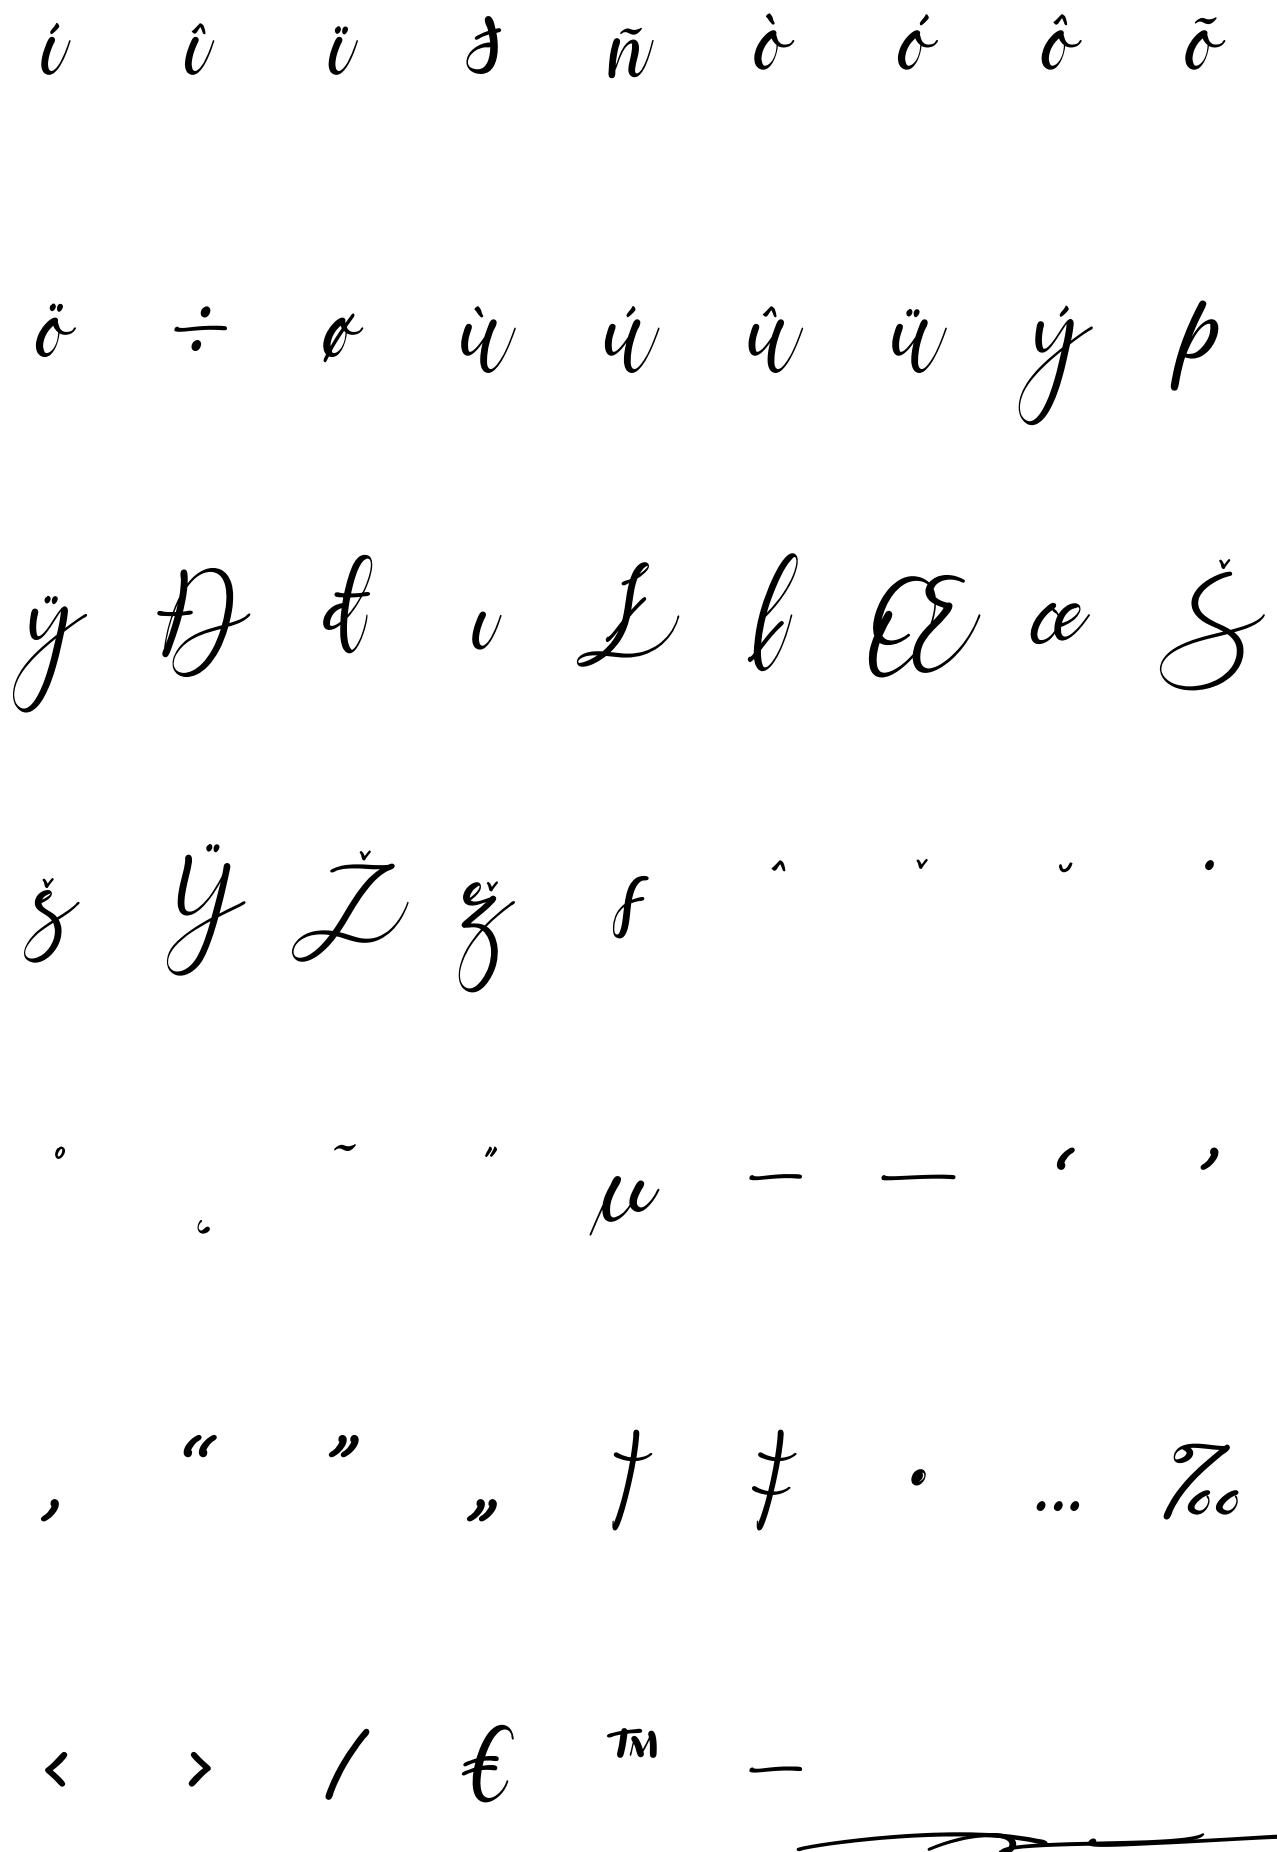 í î ï ð ñ ò ó ô õ
ö ÷ ø ù ú û ü ý þ
ÿ Đ đ ı Ł ł Œ œ Š
š Ÿ Ž ž ƒ ˆ ˇ ˘ ˙
˚ ˛ ˜ ˝ µ – — ‘ ’
‚ “ ” „ † ‡ • … ‰
‹ › ⁄ € ™ −